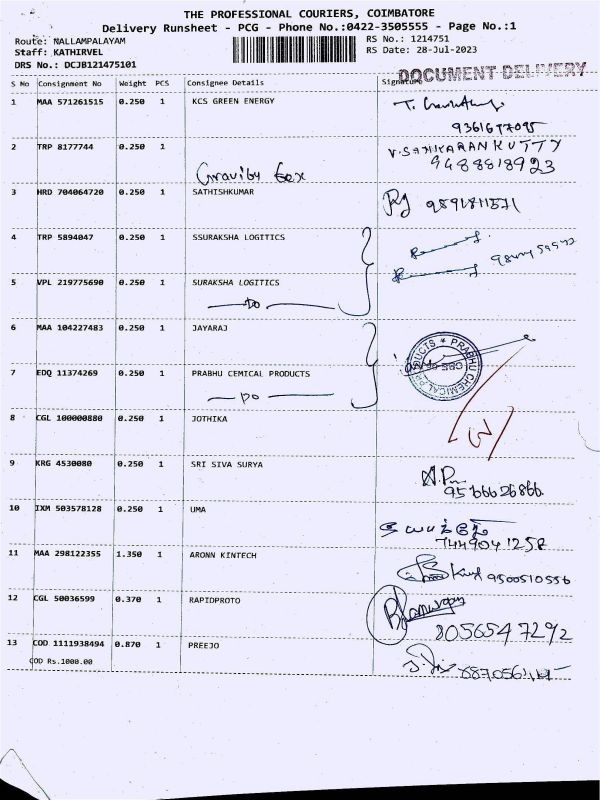 THE PROFESSIONAL COURIERS, COIMBATORE
Delivery Runsheet - PCG - Phone No.:0422-3505555 - Page No.:1
Route: NALLAMPALAYAM RS No.: 1214751
Staff: KATHIRVEL RS Date: 28-Jul-2023
DRS No.: DCJB121475101
DOCUMENT DELIVERY
S No Consignment No Weight PCS Consignee Details Signature
1 MAA 571261515 0.250 1 KCS GREEN ENERGY
9361677095
2 TRP 8177744 0.250 1 V.SANKARAN KUTTY
9488818923
Gravity Gex
3 HRD 704064720 0.250 1 SATHISHKUMAR
4 TRP 5894047 0.250 1 SSURAKSHA LOGITICS
5 VPL 219775690 0.250 1 SURAKSHA LOGITICS
Do
6 MAA 104227483 0.250 1 JAYARAJ
PRABHU CHEMICAL PRODUCTS
7 EDQ 11374269 0.250 1 PRABHU CEMICAL PRODUCTS
DO
8 CGL 100000880 0.250 1 JOTHIKA
9 KRG 4530080 0.250 1 SRI SIVA SURYA
9566626866
10 IXM 503578128 0.250 1 UMA
7449041258
11 MAA 298122355 1.350 1 ARONN KINTECH
9500510556
12 CGL 50036599 0.370 1 RAPIDPROTO
8056547292
13 COD 1111938494 0.870 1 PREEJO
COD Rs.1000.00